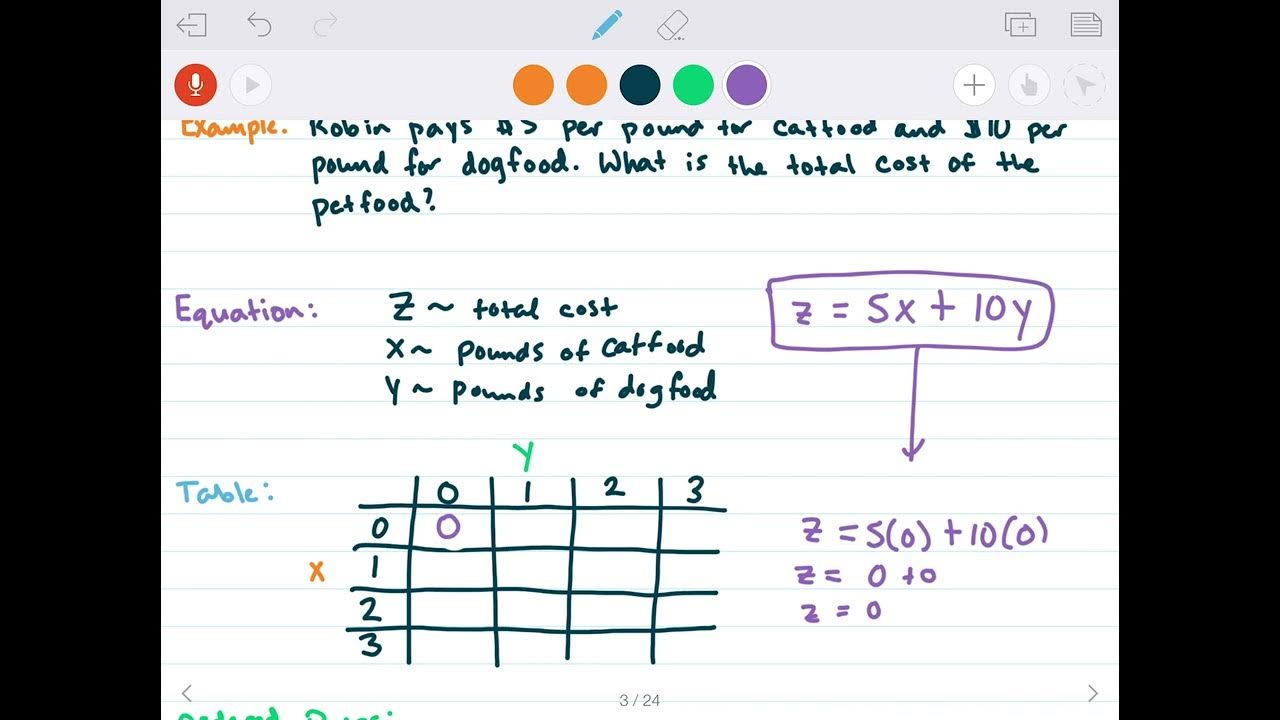 Example. Robin pays $5 per pound for catfood and $10 per
pound for dogfood. What is the total cost of the
petfood?
Equation: Z ~ total cost
X ~ pounds of catfood
Y ~ pounds of dogfood
z = 5x + 10y
Table:
Y
0 1 2 3
0 0
X 1
2
3
z = 5(0) + 10(0)
z = 0 + 0
z = 0
3 / 24